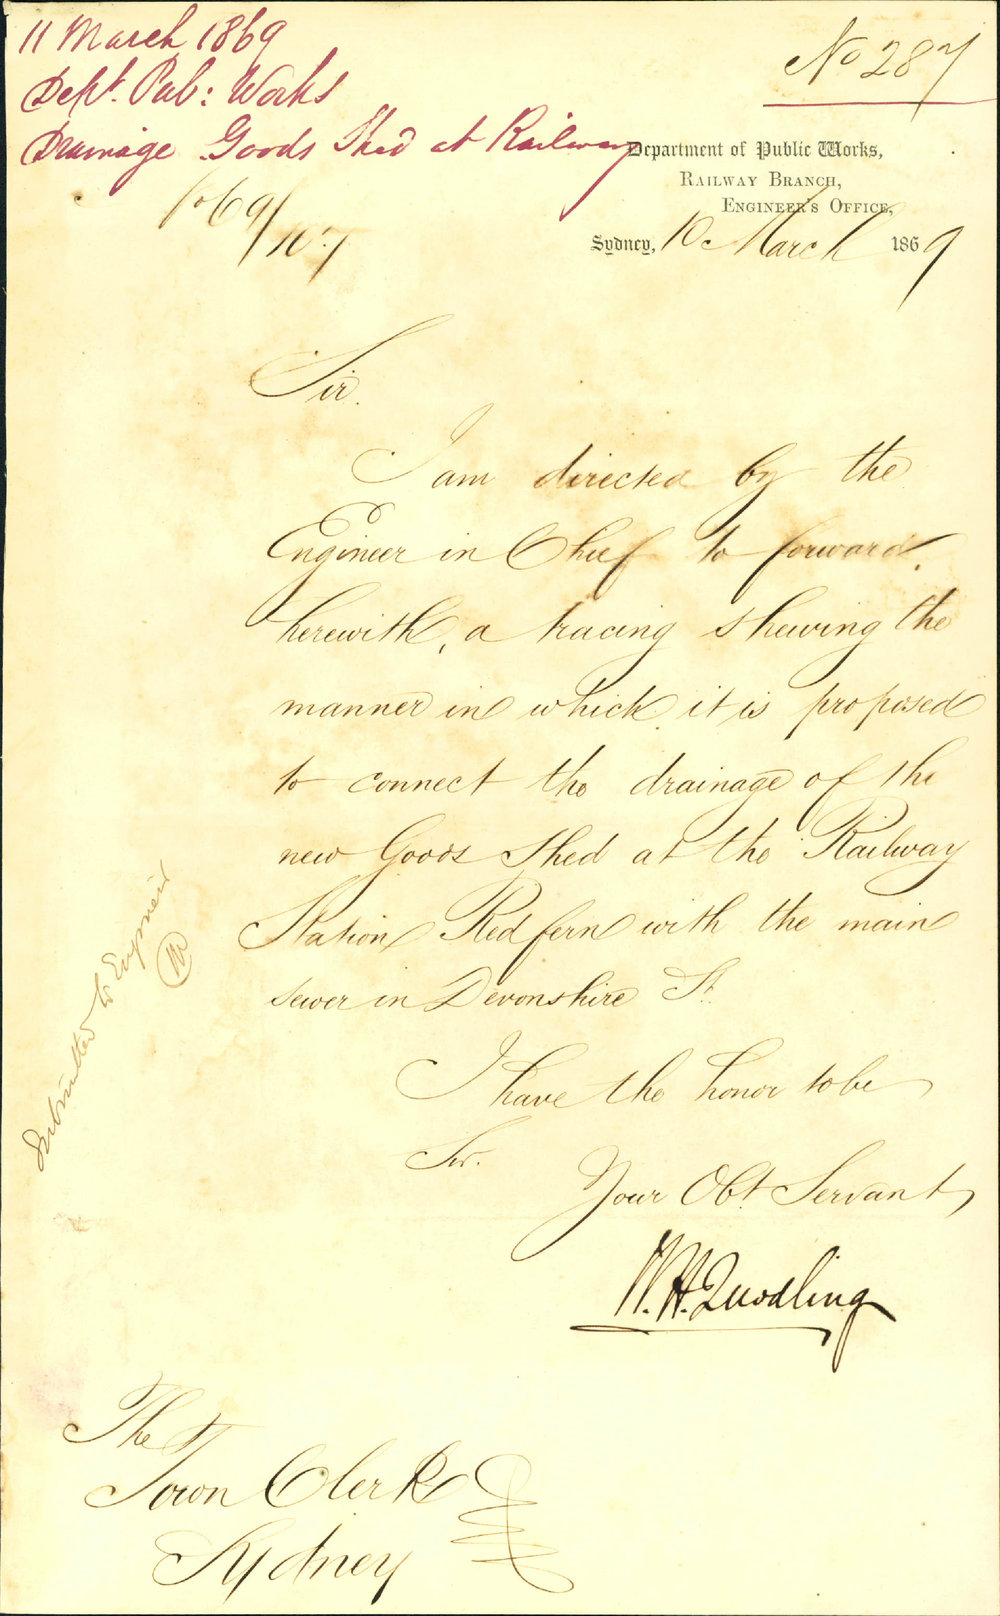 11 March 1869
Dept. Pub: Works
Drainage Goods Shed at Railway
No 287
Department of Public Works,
Railway Branch,
Engineer's Office,
Sydney, 10 March 1869
Sir.
I am directed by the
Engineer in Chief to forward,
herewith, a tracing shewing the
manner in which it is proposed
to connect the drainage of the
new Goods Shed at the Railway
Station Redfern with the main
sewer in Devonshire St.
I have the honor to be
Sir.
Your Obt Servant,
W. H. Quodling
Submitted to Engineer
The
Town Clerk
Sydney